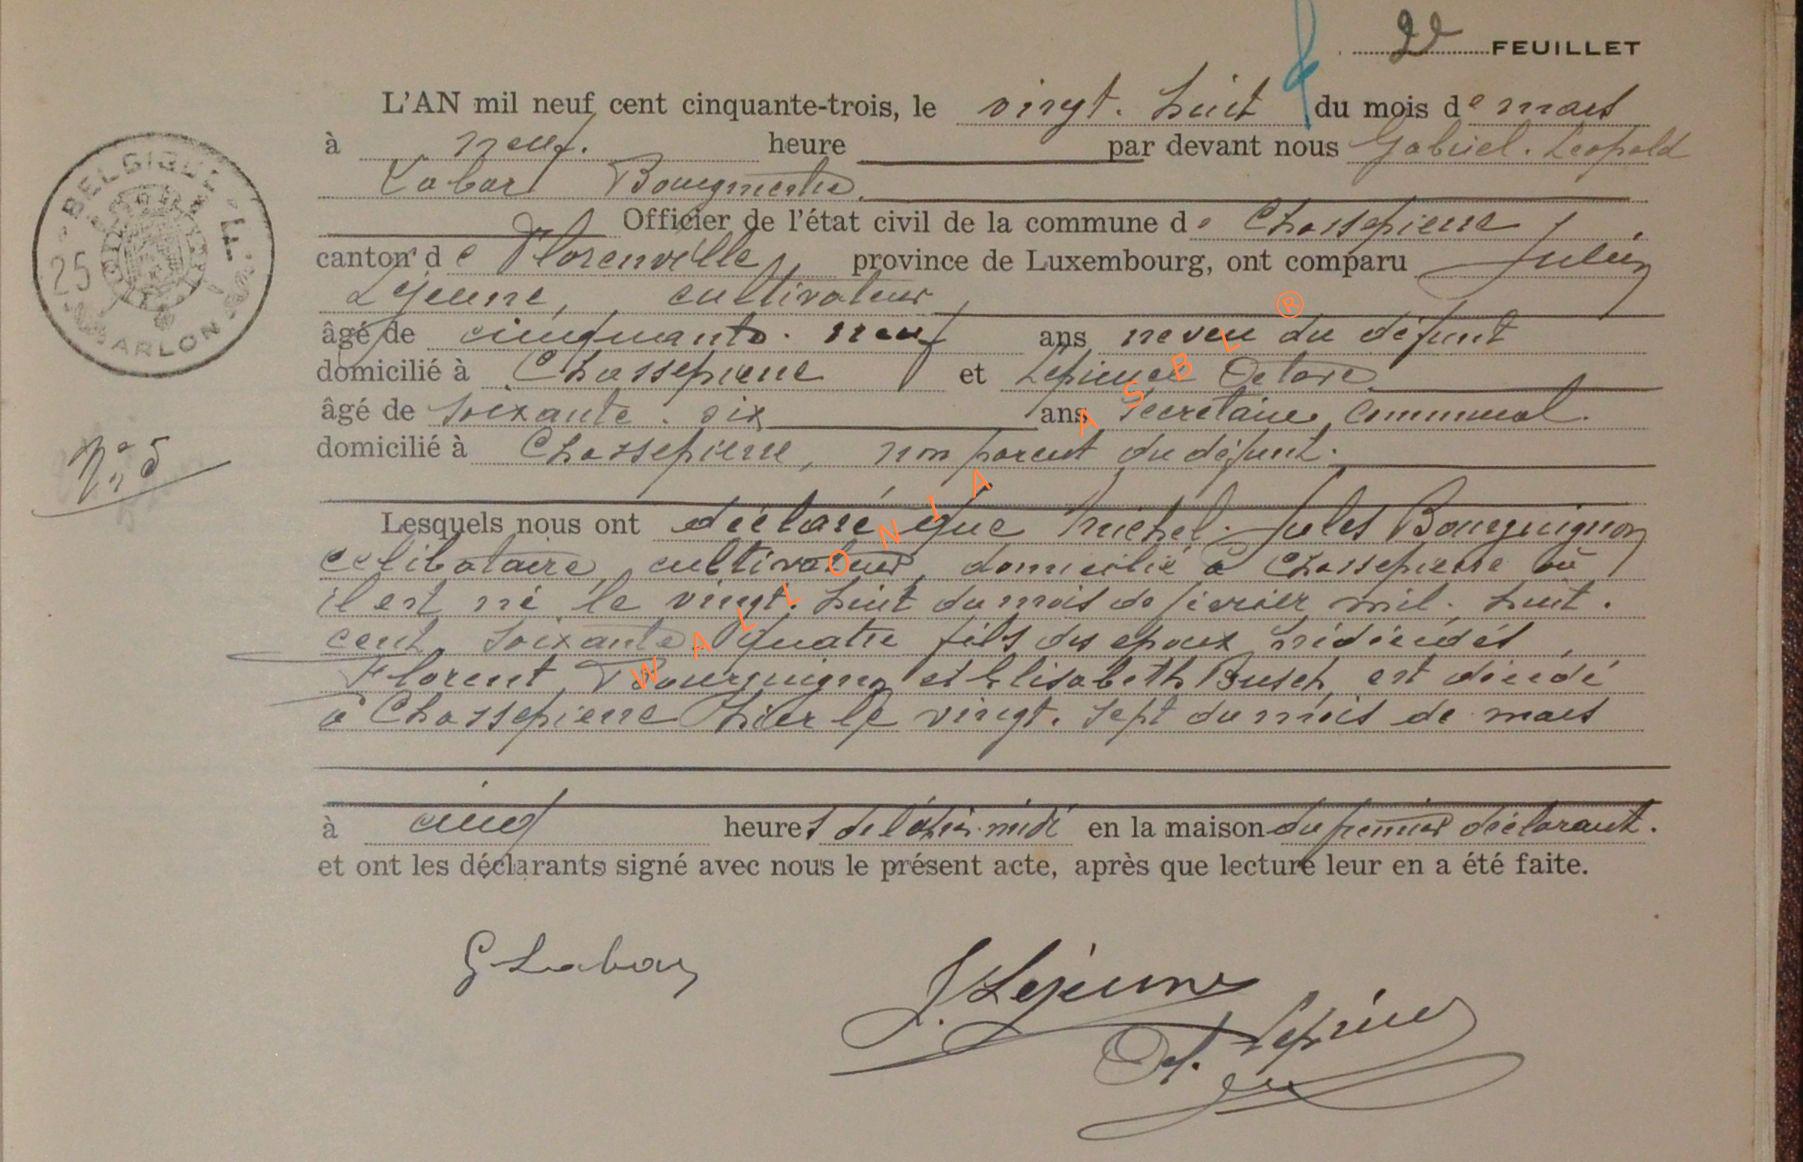 2e FEUILLET
L'AN mil neuf cent cinquante-trois, le vingt. huit du mois de mars
à neuf. heure par devant nous Gabriel. Leopold
Labar Bourgmestre
Officier de l'état civil de la commune de Chassepierre,
canton de Florenville, province de Luxembourg, ont comparu Julien
Lejeune, cultivateur,
âgé de cinquante. neuf ans neveu du défunt
domicilié à Chassepierre et Octave
âgé de soixante. six ans secrétaire communal.
domicilié à Chassepierre, non parent du défunt.
N° 5
Lesquels nous ont déclaré que Michel. Jules Bourguignon
célibataire, cultivateur, domicilié à Chassepierre où
il est né le vingt. huit du mois de février mil. huit.
cent. soixante quatre fils des époux prédécédés,
Florent Bourguignon et Elisabeth Busch, est décédé
à Chassepierre hier le vingt. sept du mois de mars
à cinq heures de l'après-midi en la maison du premier déclarant.
et ont les déclarants signé avec nous le présent acte, après que lecture leur en a été faite.
G Labar
J. Lejeune
BELGIQUE
25 F
ARLON
WALLONIA ASBL ®